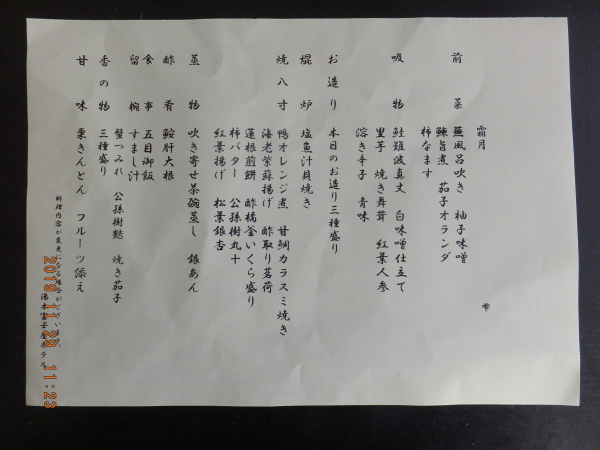 雫
霜月
前菜 蕪風呂吹き 柚子味噌
鰊旨煮 茄子オランダ
柿なます
吸物 鮭難波真丈 白味噌仕立て
里芋 焼き舞茸 紅葉人参
溶き辛子 青味
お造り 本日のお造り三種盛り
焜炉 塩魚汁貝焼き
焼八寸 鴨オレンジ煮 甘鯛カラスミ焼き
海老紫蘇揚げ 酢取り茗荷
蓮根煎餅 酢橘釜いくら盛り
柿バター 公孫樹丸十
紅葉揚げ 松葉銀杏
蒸物 吹き寄せ茶碗蒸し 銀あん
酢肴 鮟肝大根
食事 五目御飯
留椀 すまし汁
蟹つみれ 公孫樹麩 焼き茄子
香の物 三種盛り
甘味 栗きんとん フルーツ添え
料理内容が変更になる場合がございます。
湯本富士屋ホテル
2019 11 29 11:23